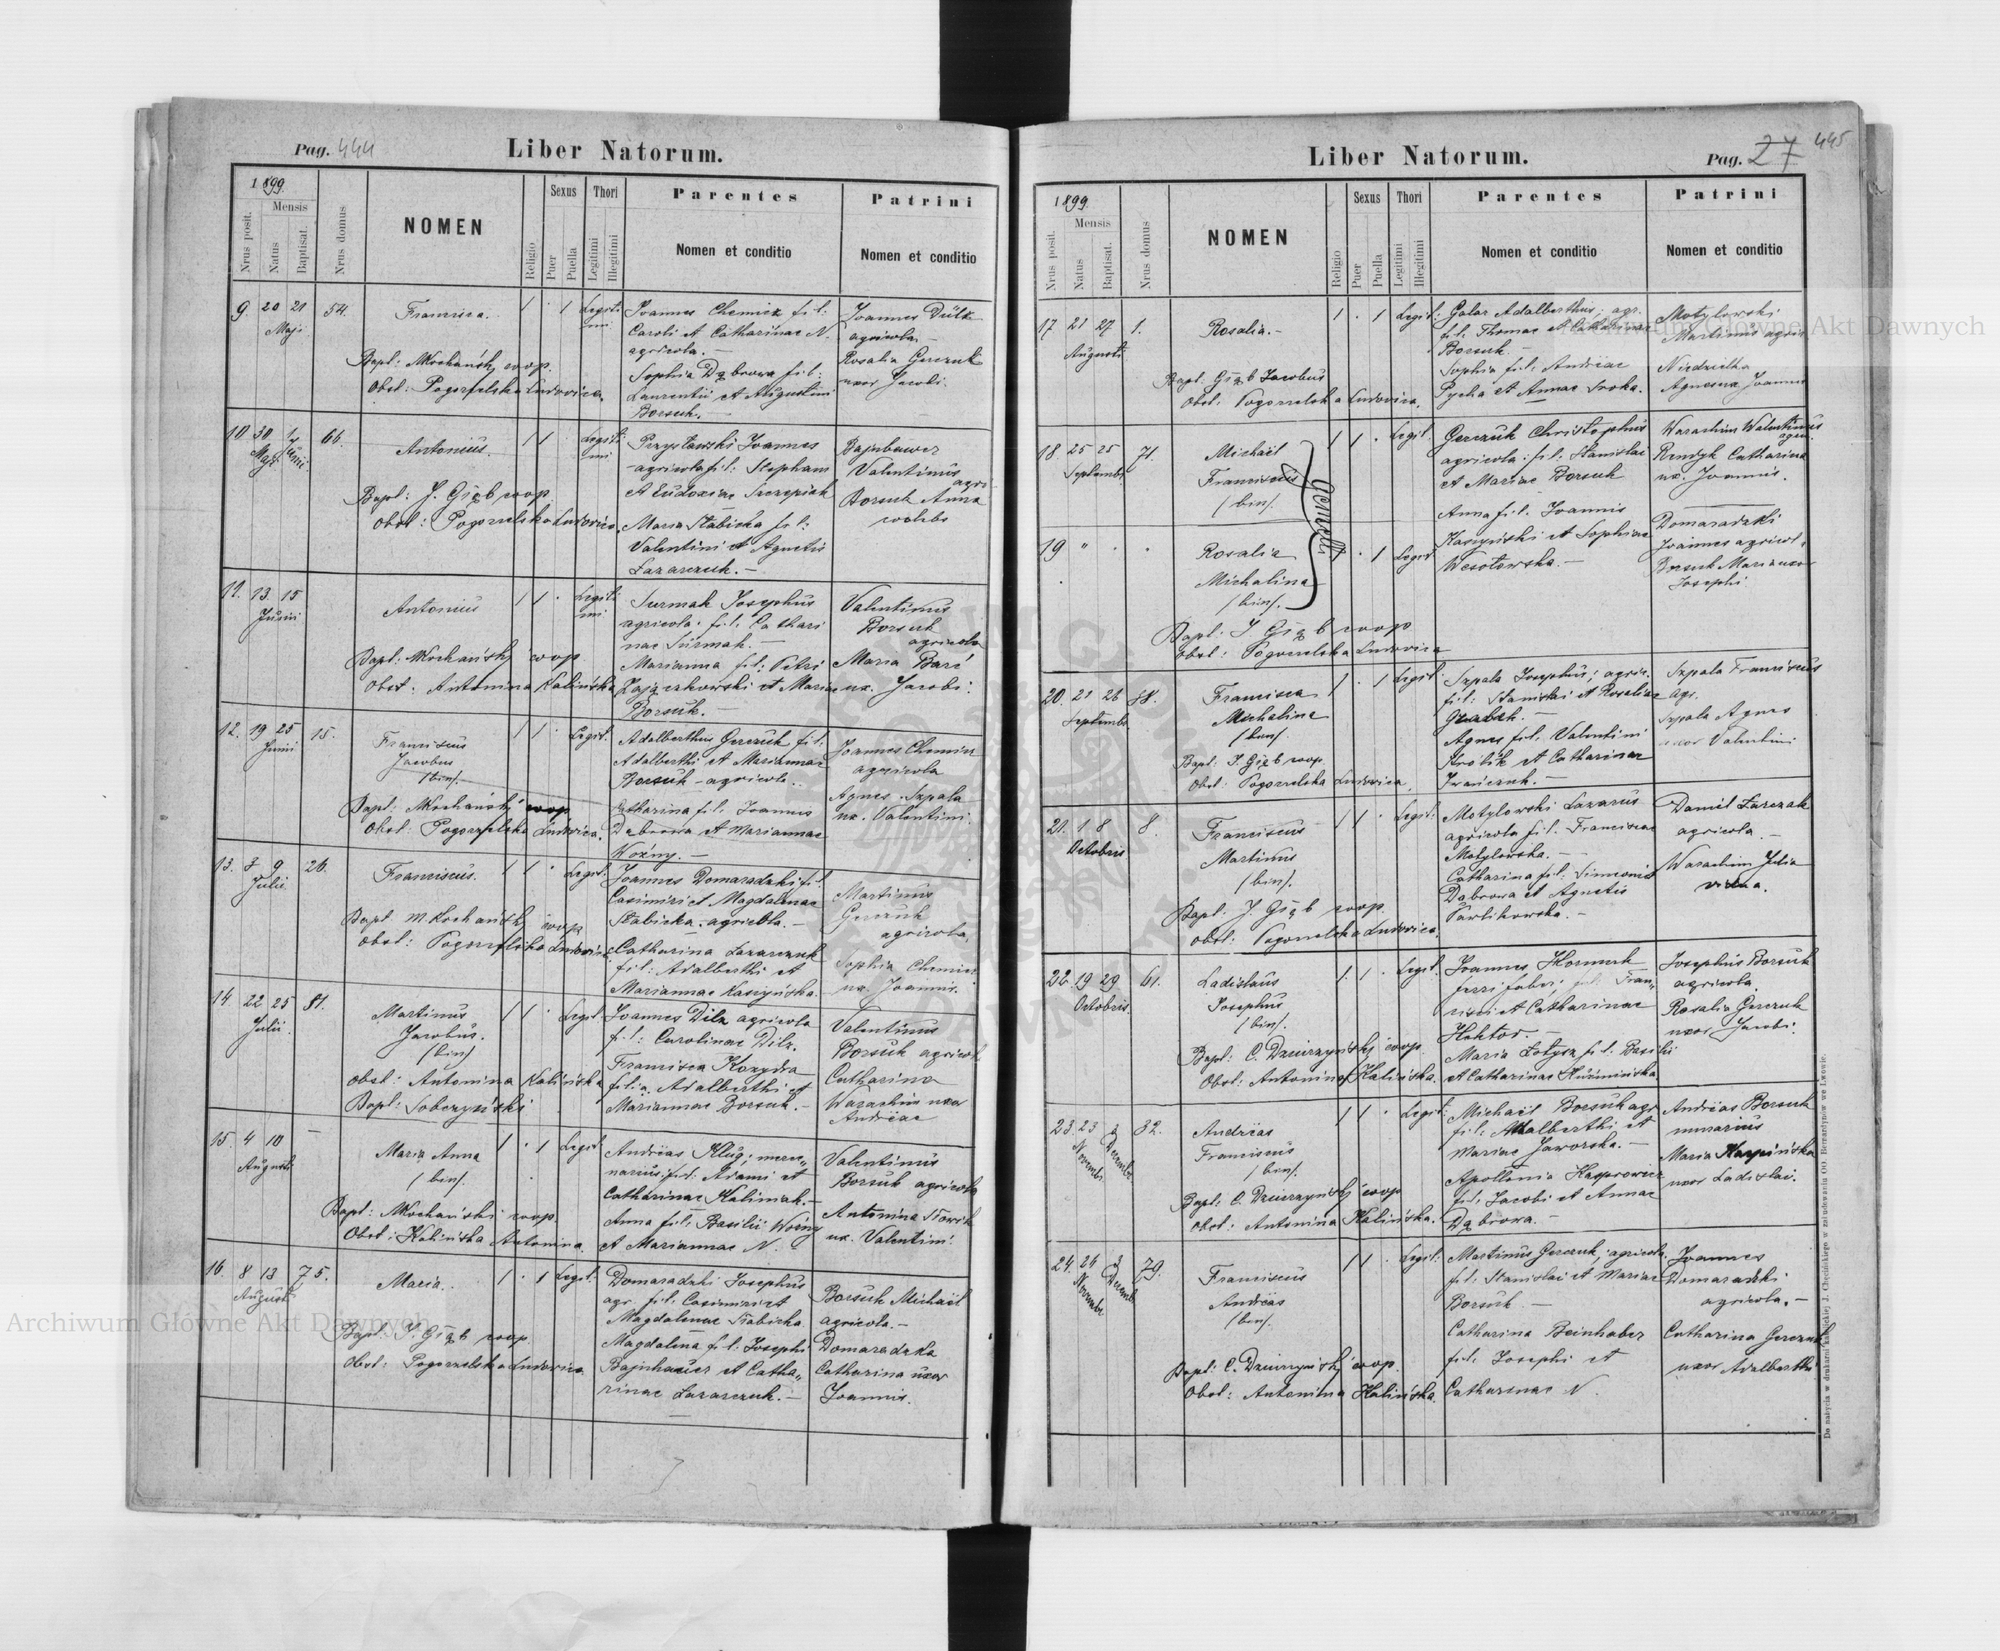 Pag. 444
Liber Natorum.
1899.
Nrus posit.
Mensis
Natus
Baptisat.
Nrus domus
NOMEN
Religio
Sexus
Puer
Puella
Thori
Legitimi
Illegitimi
Parentes
Nomen et conditio
Patrini
Nomen et conditio
9. 20 21 54.
Maji
Francisca.
1 · 1 Legiti
mi
Joannes Chemicz fil:
Caroli et Catharinae N.
agricola.—
Sophia Dąbrowa fil:
Laurentii et Augustini
Borsuk.—
Joannes Dülk
agricola—
Rosalia Gerczuk
uxor Jacobi.
Bapt: Mkochański coop.
Obst: Pogorzelska Ludovica.
10. 30 1 66.
Maji Junii
Antonius.
1 1 · Legiti
mi
Przystawski Joannes
agricola fil: Stephani
et Eudoxiae Szczepiak
Maria Słabicka fil:
Valentini et Agnetis
Lazarczuk.—
Bajnbauer
Valentinus
agri
Borsuk Anna
coelebs
Bapt: J. Giąb coop
Obst: Pogorzelska Ludovica.
11. 13. 15
Junii
Antonius
1 1 · Legiti
mi
Surmak Josephus
agricola. fil. Cathari
nae Surmak.—
Marianna fil: Petri
Zajączkowski et Mariae
Borsuk.—
Valentinus
Borsuk
agricola
Maria Barć
ux. Jacobi.
Bapt: Mkochański coop
Obst: Antonina Kalińska
12. 19 25 15.
Junii
Franciscus
Jacobus
/bin/.
1 1 · Legit.
Adalberthus Gerczuk fil:
Adalberthi et Mariannae
Borsuk – agricola.
Catharina fil. Joannis
Dąbrowa et Mariannae
Woźny.—
Joannes Chemicz
agricola
Agnes Szpala
ux. Valentini.
Bapt: Mkochański coop
Obst: Pogorzelska Ludovica.
13. 3 9 26.
Julii
Franciscus.
1 1 · Legit.
Joannes Domaradzki fil.
Casimiri et Magdalenae
Słabicka. agricola.—
Catharina Lazarczuk
fil: Adalberthi et
Mariannae Kaszyńska.
Martinus
Gerczuk
agricola.
Sophia Chemicz
ux. Joannis.
Bapt M Kochański coop
Obst: Pogorzelska Ludovica
14 22 25 81.
Julii
Martinus
Jacobus.
/bin/
1 1 · Legit.
Joannes Dilz agricola
f.l: Carolinae Dilz.
Francisca Kozydra
filia Adalberthi et
Mariannae Borsuk.—
Valentinus
Borsuk agricol
Catharina
Warachim uxor
Andreae
Obst: Antonina Kalińska
Bapt: Sobczyński
15. 4 10 —
Augusti
Maria Anna
/bin/.
1 · 1 Legit
Andreas Klug; merce„
narius, fil. Adami et
Catharinae Kalimak.—
Anna fil. Basilii Woźny
et Mariannae N.
Valentinus
Borsuk agricola
Antonina Słowik
ux. Valentini.
Bapt: Mkochański coop.
Obst: Kalińska Antonina.
16. 8 13 75.
Augusti
Maria.
1 · 1 Legit.
Domaradzki Josephus
agr. fil. Casimiri et
Magdalenae Słabicka.
Magdalena fil: Josephi
Bajnhauer et Catha„
rinae Lazarczuk.—
Borsuk Michaël
agricola.—
Domaradzka
Catharina uxor
Joannis.
Bapt: J. Giąb coop.
Obst: Pogorzelska Ludovica
Liber Natorum.
Pag. 27
445
1899.
Nrus posit.
Mensis
Natus
Baptisat.
Nrus domus
NOMEN
Religio
Sexus
Puer
Puella
Thori
Legitimi
Illegitimi
Parentes
Nomen et conditio
Patrini
Nomen et conditio
17 21 27 1.
Augusti
Rosalia.—
1 · 1 Legit.
Galas Adalberthus, agr.
fil. Thomae et Catharinae
Borsuk.—
Sophia fil. Andreae
Pycha et Annae Sroka.
Motylowski
Martinus agric.
Niedzielka
Agnes ux. Joannis
Bapt. Giąb Jacobus
Obst. Pogorzelska Ludovica.
18 25 25 71
Septembr.
Michaël
Franciscus
/bin/.
Gemelli
1 1 · Legit.
Gerczuk Christophus
agricola. fil: Stanislai
et Mariae Borsuk
Anna fil. Joannis
Kaszyński et Sophiae
Wesołowska.—
Warachim Walentinus
agri.
Rendyk Catharina
ux. Joannis.
19 " · ·
Rosalia
Michalina
/bin/.
1 · 1 Legit.
Domaradzki
Joannes agricol.
Borsuk Maria uxor
Josephi
Bapt: J Giąb coop
Obst: Pogorzelska Ludovica
20. 21 26 58.
Septembr.
Francisca
Michalina
/bin/.
1 · 1 Legit.
Szpala Josephus; agric.
fil: Stanislai et Rosaliae
Grabek.—
Agnes fil. Valentini
Królik et Catharinae
Iwańczuk.—
Szpala Franciscus
agr.
Szpala Agnes
uxor Valentini
Bapt. J. Giąb coop
Obst. Pogorzelska Ludovica.
21. 1 8 8.
Octobris
Franciscus
Martinus
/bin/.
1 1 · Legit.
Motylowski Lazarus
agricola fil. Franciscae
Motylowska.—
Catharina fil: Simeonis
Dąbrowa et Agnetis
Pawlikowska.—
Daniel Łarczak
agricola.—
Warachim Julia
vidua.
Bapt. J. Giąb coop.
Obst: Pogorzelska Ludovica.
22. 19 29 61.
Octobris
Ladislaus
Josephus
/bin/.
1 1 · Legit.
Joannes Hormerk
ferri faber; fil. Fran„
cisci et Catharinae
Hektor.—
Maria Łotysz fil. Basilii
et Catharinae Kuźmińska
Josephus Borsuk
agricola.
Rosalia Gerczuk
uxor Jacobi.
Bapt: C. Dzierzyński coop.
Obst: Antonina Kalińska.
23. 23 3 32.
Novembr. Decembr.
Andreas
Franciscus
/bin/.
1 1 · Legit.
Michaël Borsuk agr
fil: Adalberthi et
Mariae Jaworska.—
Apollonia Kasprowicz
fil. Jacobi et Annae
Dąbrowa.—
Andreas Borsuk
murarius
Maria Karpińska
uxor Ladislai.
Bapt: C. Dzierzyński coop
Obst: Antonina Kalińska.
24. 26 3 79.
Novembr. Decembr.
Franciscus
Andreas
/bin/.
1 1 · Legit.
Martinus Gerczuk, agricola
fil. Stanislai et Mariae
Borsuk.—
Catharina Beinhaber
fil. Josephi et
Catharinae N.
Joannes
Domaradzki
agricola.—
Catharina Gerczuk
uxor Adalberthi
Bapt: C. Dzierzyński coop.
Obst: Antonina Kalińska.
Do nabycia w drukarni katolickiej J. Chęcińskiego w zabudowaniu OO. Bernardynów we Lwowie.
Archiwum Główne Akt Dawnych
Archiwum Główne Akt Dawnych